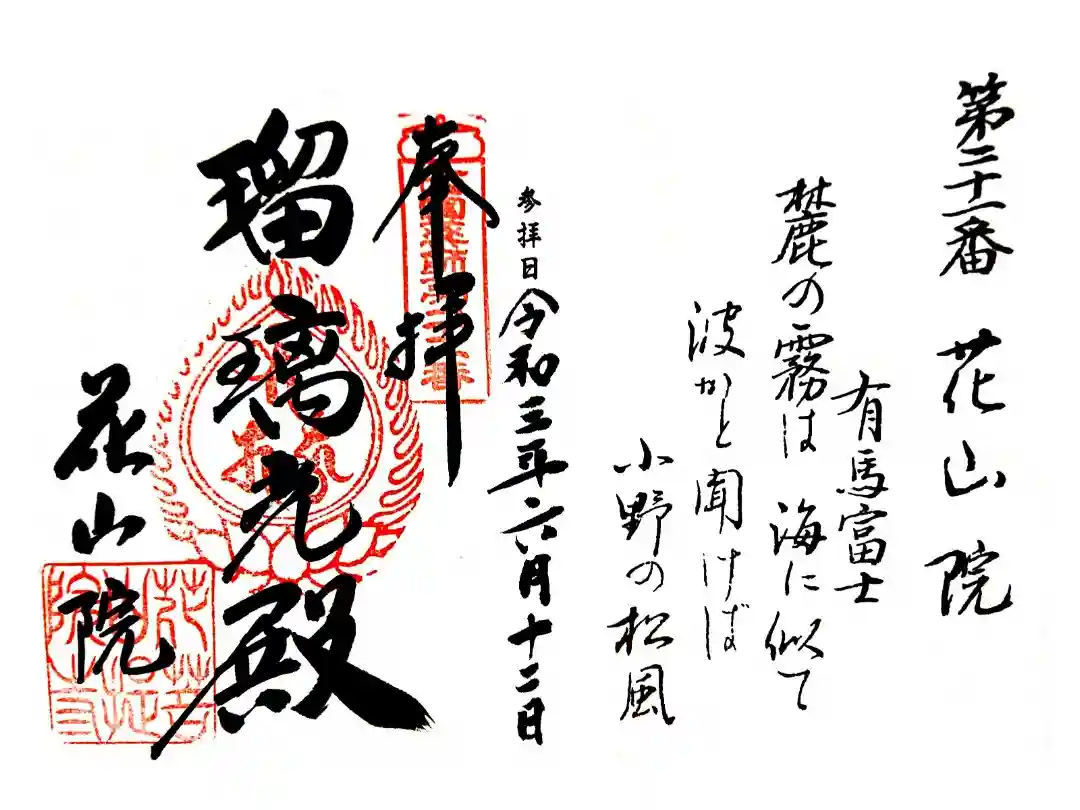 第二十一番 花山院
有馬富士
麓の霧は 海に似て
波かと聞けば
小野の松風
参拝日 令和三年六月十二日
奉拝
瑠璃光殿
花山院